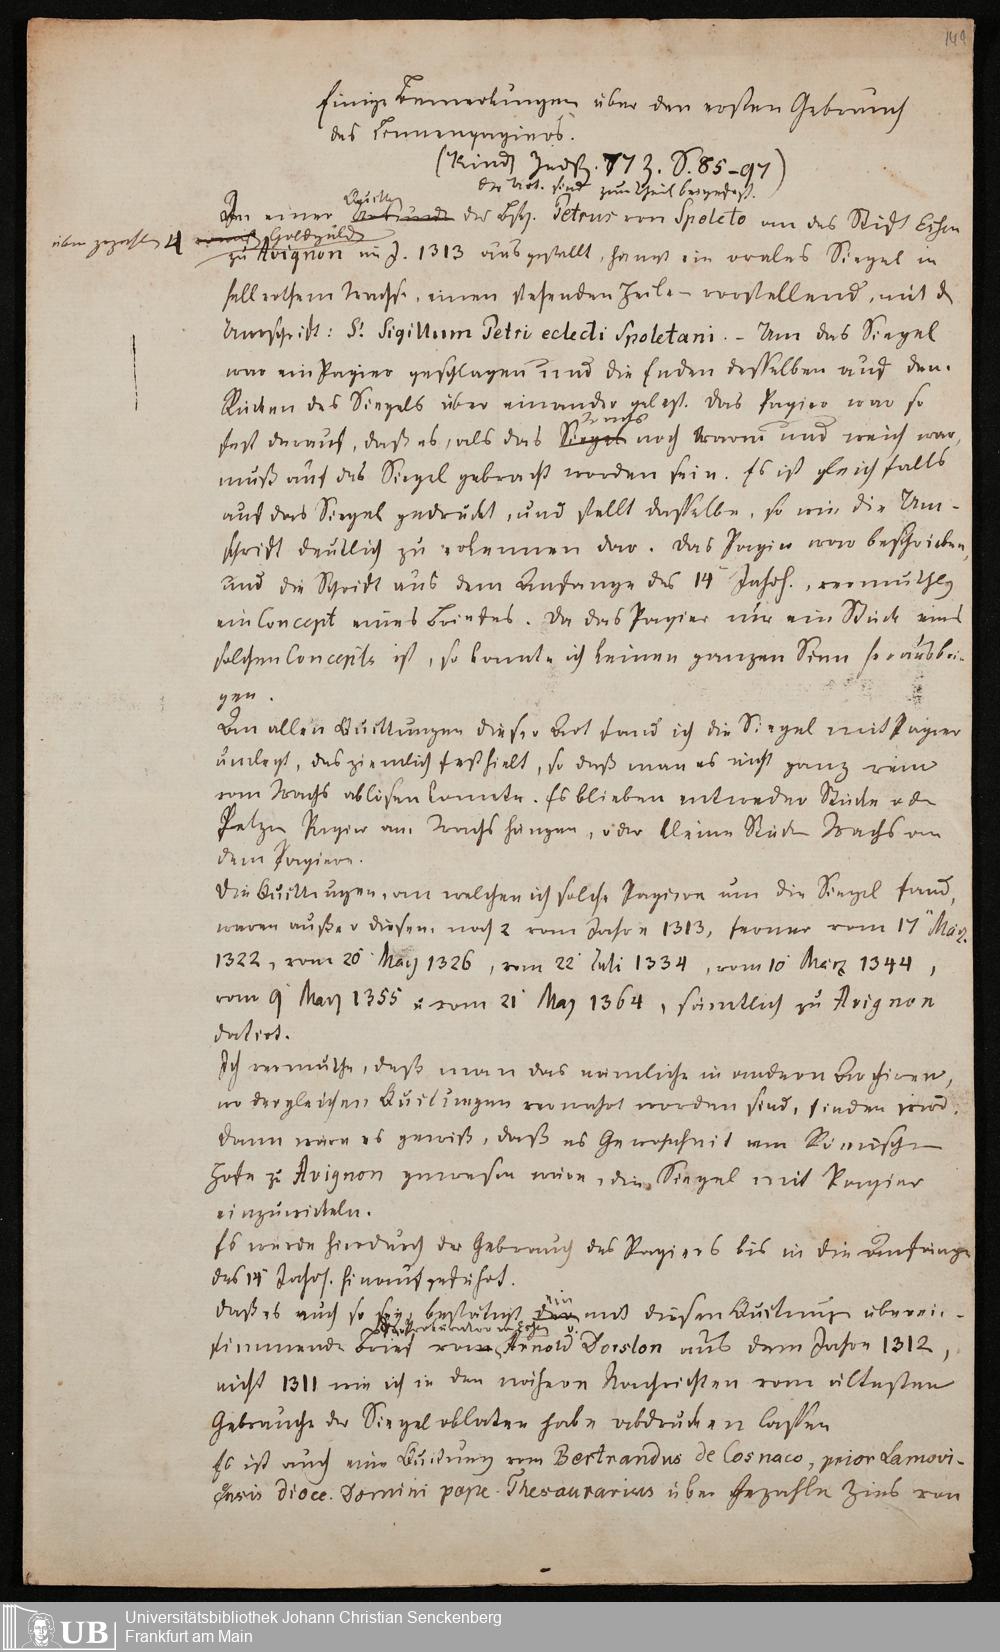 149
Einige Bemerkungen über den ersten Gebrauch
des Linnenpapiers.
(Kindl. Hdsch. 173. S. 85-97)
die Urk. sind zum Theil beigedrst.
An einer Quitt. Urkunde des Bsch. Petrus von Spoleto an das Stift Essen
über gezahlte 4 Goldgulde
zu Avignon im J. 1313 ausgestellt, hangt ein ovales Siegel in
hellrothem Wachse, einen stehenden Heile- vorstellend, mit d
Umschrift: S. Sigillum Petri eclecti Spoletani. - Um das Siegel
war ein Papier geschlagen und die Enden desselben auf den
Rücken des Siegels über einander gelegt. Das Papier war so
fest darauf, daß es, als das Siegel Wachs noch warm und weich war,
muß auf das Siegel gebracht worden sein. Es ist gleichfalls
auf das Siegel gedruckt, und stellt dasselbe, so wie die Um-
schrift deutlich zu erkennen dar. Das Papier war beschrieben,
und die Schrift aus dem Anfange des 14 Jahrh., vermuthl.
ein Concept eines Briefes. Da das Papier nur ein Stück eines
solchen Concepts ist, so konnte ich keinen ganzen Sinn herausbrin-
gen.
An allen Quittungen dieser Art fand ich die Siegel mit Papier
umlegt, das ziemlich festhielt, so daß man es nicht ganz rein
vom Wachs ablösen konnte. Es blieben entweder Stücke oder
Fetzen Papier am Wachs hangen, oder kleine Stücke Wachs an
dem Papiere.
Die Quittungen, an welchen ich solche Papiere um die Siegel fand,
waren außer diesen noch 2 vom Jahre 1313, ferner vom 17 März
1322, vom 20 May 1326, vom 22 Juli 1334, vom 10 März 1344,
vom 9 May 1355 u vom 21 May 1364, sämtlich zu Avignon
datirt.
Ich vermuthe, daß man das nämliche in andern Archiven,
wo dergleichen Quittungen verwahrt worden sind, finden wird.
Dann wäre es gewiß, daß es Gewohnheit am Römischen
Hofe zu Avignon gewesen wäre, die Siegel mit Papier
einzuwickeln.
Es wurde hierdurch der Gebrauch des Papiers bis in die Anfänge
des 14 Jahrh. hinaufgeführt.
Daß es auch so sei, bestätigt der ein mit diesen Quittung überein-
stimmende Brief vom Arnold v. Dorsten aus dem Jahre 1312,
nicht 1311 wie ich in den nähern Nachrichten vom ältesten
Gebrauche der Siegeloblaten habe abdrucken lassen
Es ist auch eine Quittung von Bertrandus de Cosnaco, prior Lamovi-
censis dioce. Domini pape Thesaurarius über gezahlte Zins von
Universitätsbibliothek Johann Christian Senckenberg
Frankfurt am Main
UB